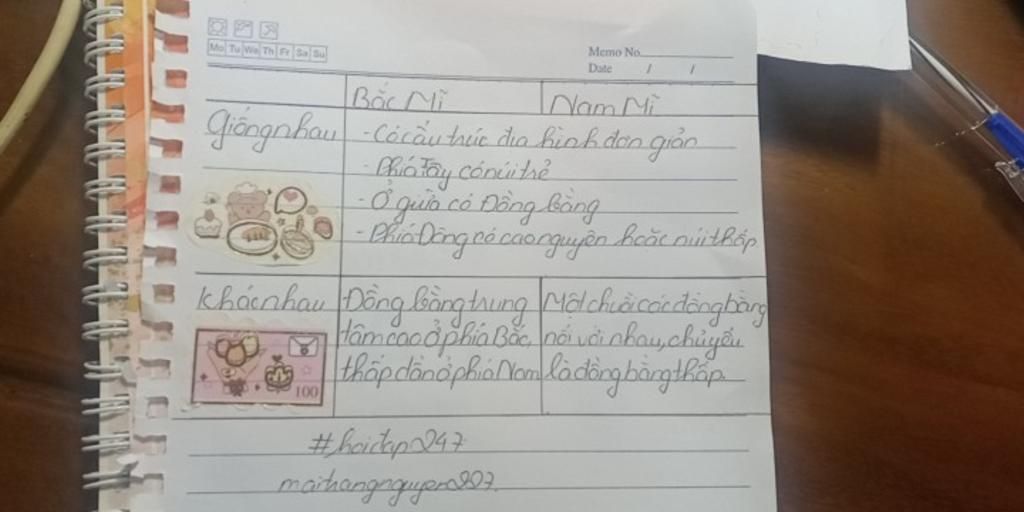 Mo Tu We Th Fr Sa Su
Memo No.
Date / /
Bắc Mĩ Nam Mĩ
Giống nhau - Có cấu trúc địa hình đơn giản
- Phía Tây có núi trẻ
- Ở giữa có Đồng bằng
- Phía Đông có cao nguyên hoặc núi thấp
Khác nhau Đồng bằng trung Một chuỗi các đồng bằng
tâm cao ở phía Bắc, nối với nhau, chủ yếu
thấp dần ở phía Nam là đồng bằng thấp.
100
#hoidap247
maihangnguyen207.